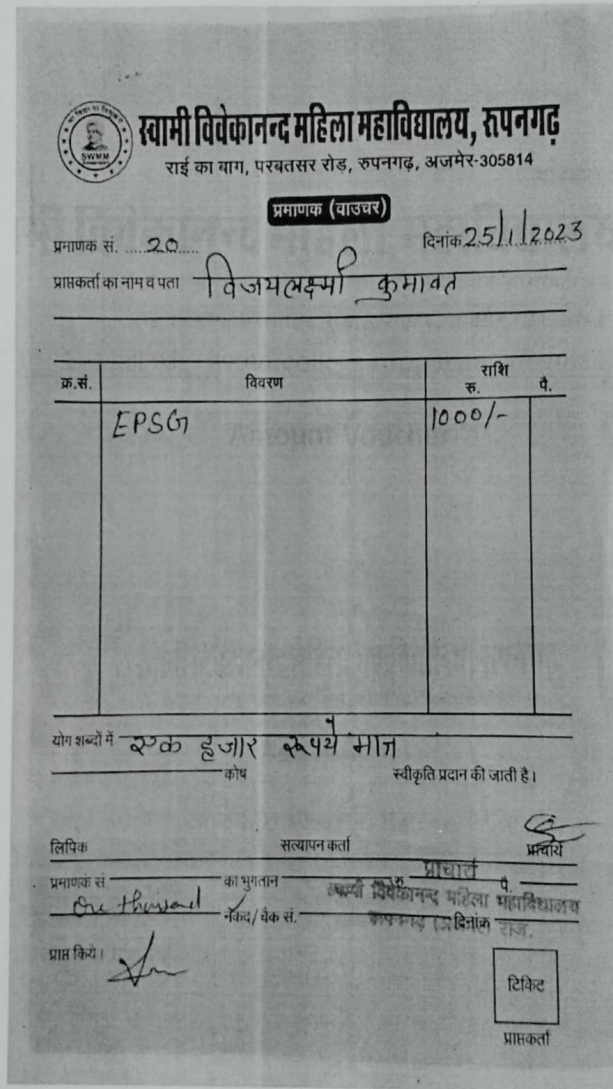 SWMM
स्वामी विवेकानन्द महिला महाविद्यालय, रुपनगढ़
राई का बाग, परबतसर रोड़, रुपनगढ़, अजमेर-305814
प्रमाणक (वाउचर)
प्रमाणक सं. 20 दिनांक 25/1/2023
प्राप्तकर्ता का नाम व पता विजयलक्ष्मी कुमावत
क्र.सं. विवरण राशि
रु. पै.
EPSG 1000/-
योग शब्दों में एक हजार रूपये मात्र
कोष स्वीकृति प्रदान की जाती है।
लिपिक सत्यापन कर्ता प्राचार्य
प्राचार्य
प्रमाणक सं. का भुगतान पै.
स्वामी विवेकानन्द महिला महाविद्यालय
One thousand नकद/चैक सं. दिनांक
रूपनगढ़ राज.
प्राप्त किये।
टिकिट
प्राप्तकर्ता